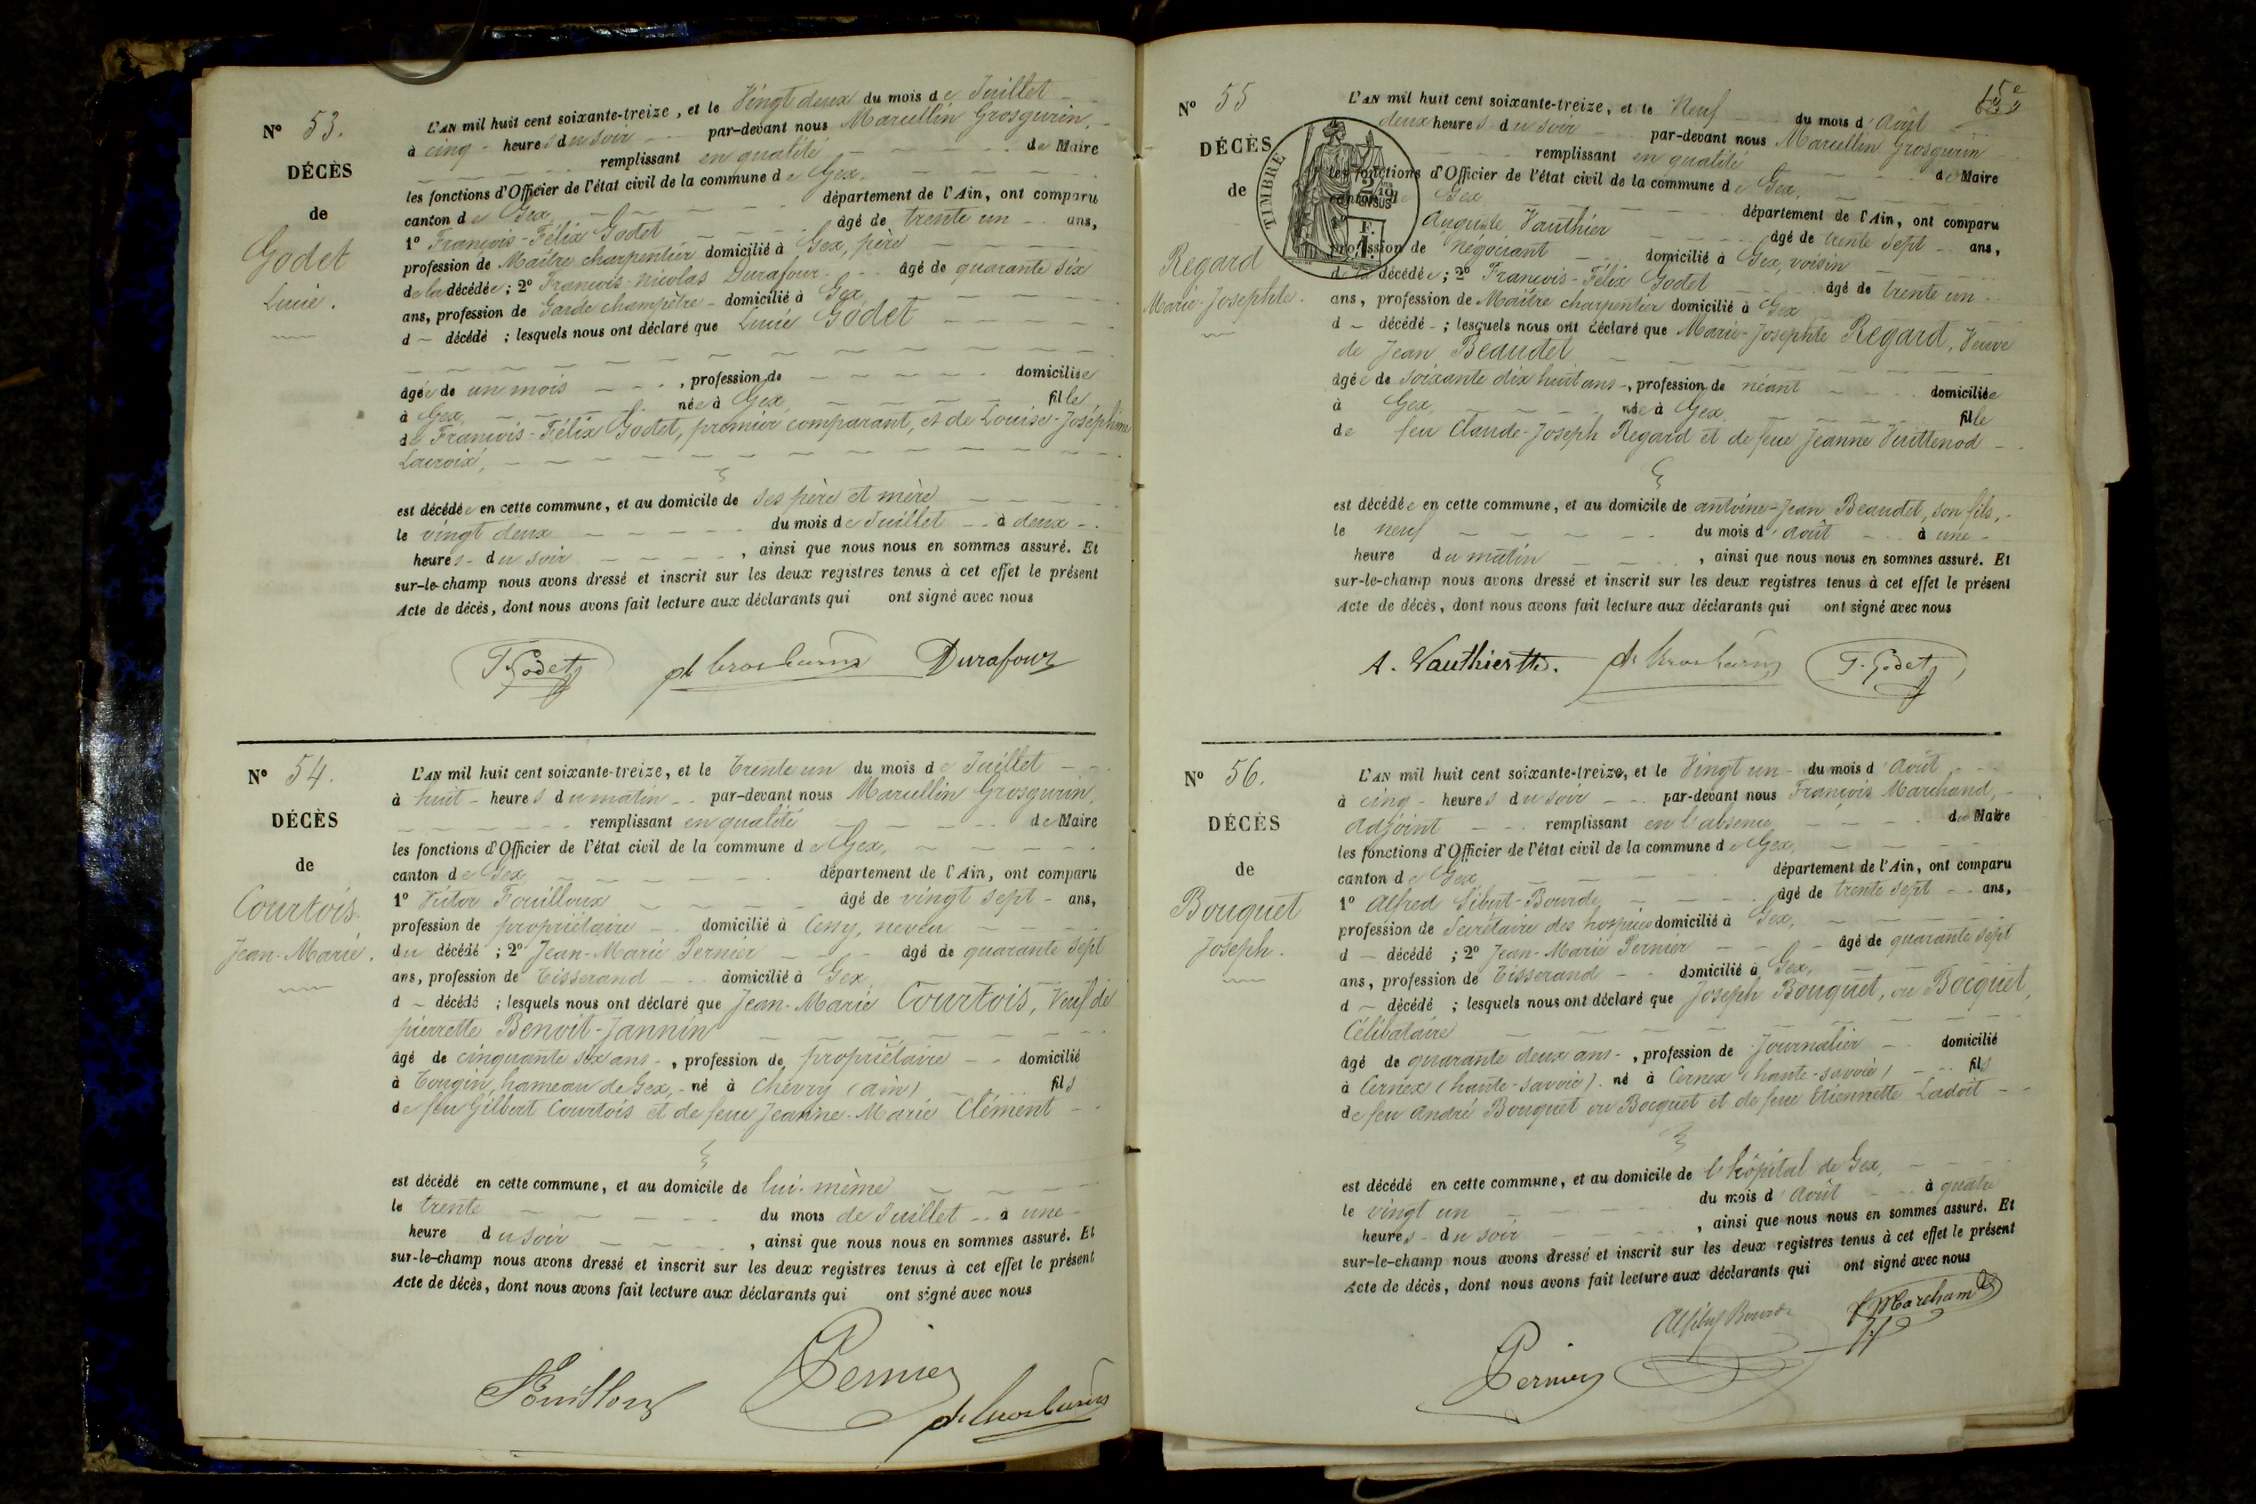 N° 53.
DÉCÈS
de
Godet
Lucie.
L'AN mil huit cent soixante-treize, et le Vingt deux du mois de Juillet
à cinq heures du soir par-devant nous Marcellin Grosgurin,
remplissant en qualité de Maire
les fonctions d'Officier de l'état civil de la commune de Gex,
canton de Gex département de l'Ain, ont comparu
1° François-Félix Godet âgé de trente un ans,
profession de Maître charpentier domicilié à Gex, père
de la décédée; 2° François-Nicolas Durafour âgé de quarante six
ans, profession de Garde champêtre domicilié à Gex
d décédé ; lesquels nous ont déclaré que Lucie Godet
âgée de un mois, profession de domiciliée
à Gex, née à Gex, fille
de François-Félix Godet, premier comparant, et de Louise-Joséphine
Lacroix,
est décédée en cette commune, et au domicile de ses père et mère
le vingt deux du mois de Juillet à deux
heures du soir, ainsi que nous nous en sommes assuré. Et
sur-le-champ nous avons dressé et inscrit sur les deux registres tenus à cet effet le présent
Acte de décès, dont nous avons fait lecture aux déclarants qui ont signé avec nous
F. Godet Durafour
N° 54.
DÉCÈS
de
Courtois
Jean-Marie.
L'AN mil huit cent soixante-treize, et le Trente un du mois de Juillet
à huit heures du matin par-devant nous Marcellin Grosgurin,
remplissant en qualité de Maire
les fonctions d'Officier de l'état civil de la commune de Gex,
canton de Gex département de l'Ain, ont comparu
1° Victor Fouilloux âgé de vingt sept ans,
profession de propriétaire domicilié à Cessy, neveu
du décédé ; 2° Jean-Marie Pernier âgé de quarante sept
ans, profession de Tisserand domicilié à Gex
d décédé ; lesquels nous ont déclaré que Jean-Marie Courtois, Veuf de
pierrette Benoit-Jannin
âgé de cinquante six ans, profession de propriétaire domicilié
à Tougin, hameau de Gex, né à Chevry (ain) fils
de feu Gilbert Courtois et de feue Jeanne-Marie Clément
est décédé en cette commune, et au domicile de lui-même
le trente du mois de Juillet à une
heure du soir, ainsi que nous nous en sommes assuré. Et
sur-le-champ nous avons dressé et inscrit sur les deux registres tenus à cet effet le présent
Acte de décès, dont nous avons fait lecture aux déclarants qui ont signé avec nous
Pernier
N° 55
DÉCÈS
de
Regard
Marie-Josephte.
TIMBRE
L'AN mil huit cent soixante-treize, et le Neuf du mois d'Août
deux heures du soir par-devant nous Marcellin Grosgurin
remplissant en qualité de Maire
les fonctions d'Officier de l'état civil de la commune de Gex,
canton de Gex département de l'Ain, ont comparu
Auguste Vauthier âgé de trente sept ans,
profession de négociant domicilié à Gex, voisin
d la décédée; 2° François-Félix Godet âgé de trente un
ans, profession de Maître charpentier domicilié à Gex
d décédé ; lesquels nous ont déclaré que Marie-Josephte Regard, Veuve
de Jean Beaudet
âgée de soixante dix huit ans, profession de néant domiciliée
à Gex, née à Gex fille
de feu Claude-Joseph Regard et de feue Jeanne Vuittenod
est décédée en cette commune, et au domicile de antoine-Jean Beaudet, son fils,
le neuf du mois d'août à une
heure du matin, ainsi que nous nous en sommes assuré. Et
sur-le-champ nous avons dressé et inscrit sur les deux registres tenus à cet effet le présent
Acte de décès, dont nous avons fait lecture aux déclarants qui ont signé avec nous
A. Vauthier F. Godet
N° 56.
DÉCÈS
de
Bouquet
Joseph.
L'AN mil huit cent soixante-treize, et le Vingt un du mois d'Août
à cinq heures du soir par-devant nous François Marchand,
adjoint remplissant en l'absence du Maire
les fonctions d'Officier de l'état civil de la commune de Gex,
canton de Gex département de l'Ain, ont comparu
1° Alfred Sibut-Bourde âgé de trente sept ans,
profession de Secrétaire des hospices domicilié à Gex,
d décédé ; 2° Jean-Marie Pernier âgé de quarante sept
ans, profession de Tisserand domicilié à Gex,
d décédé ; lesquels nous ont déclaré que Joseph Bouquet, ou Bocquet,
Célibataire
âgé de quarante deux ans, profession de Journalier domicilié
à Cernex (haute-savoie). né à Cernex (haute-savoie) fils
de feu andré Bouquet ou Bocquet et de feue Etiennette Ladoit
est décédé en cette commune, et au domicile de l'hôpital de Gex,
le vingt un du mois d'Août à quatre
heures du soir, ainsi que nous nous en sommes assuré. Et
sur-le-champ nous avons dressé et inscrit sur les deux registres tenus à cet effet le présent
Acte de décès, dont nous avons fait lecture aux déclarants qui ont signé avec nous
Pernier Marchand